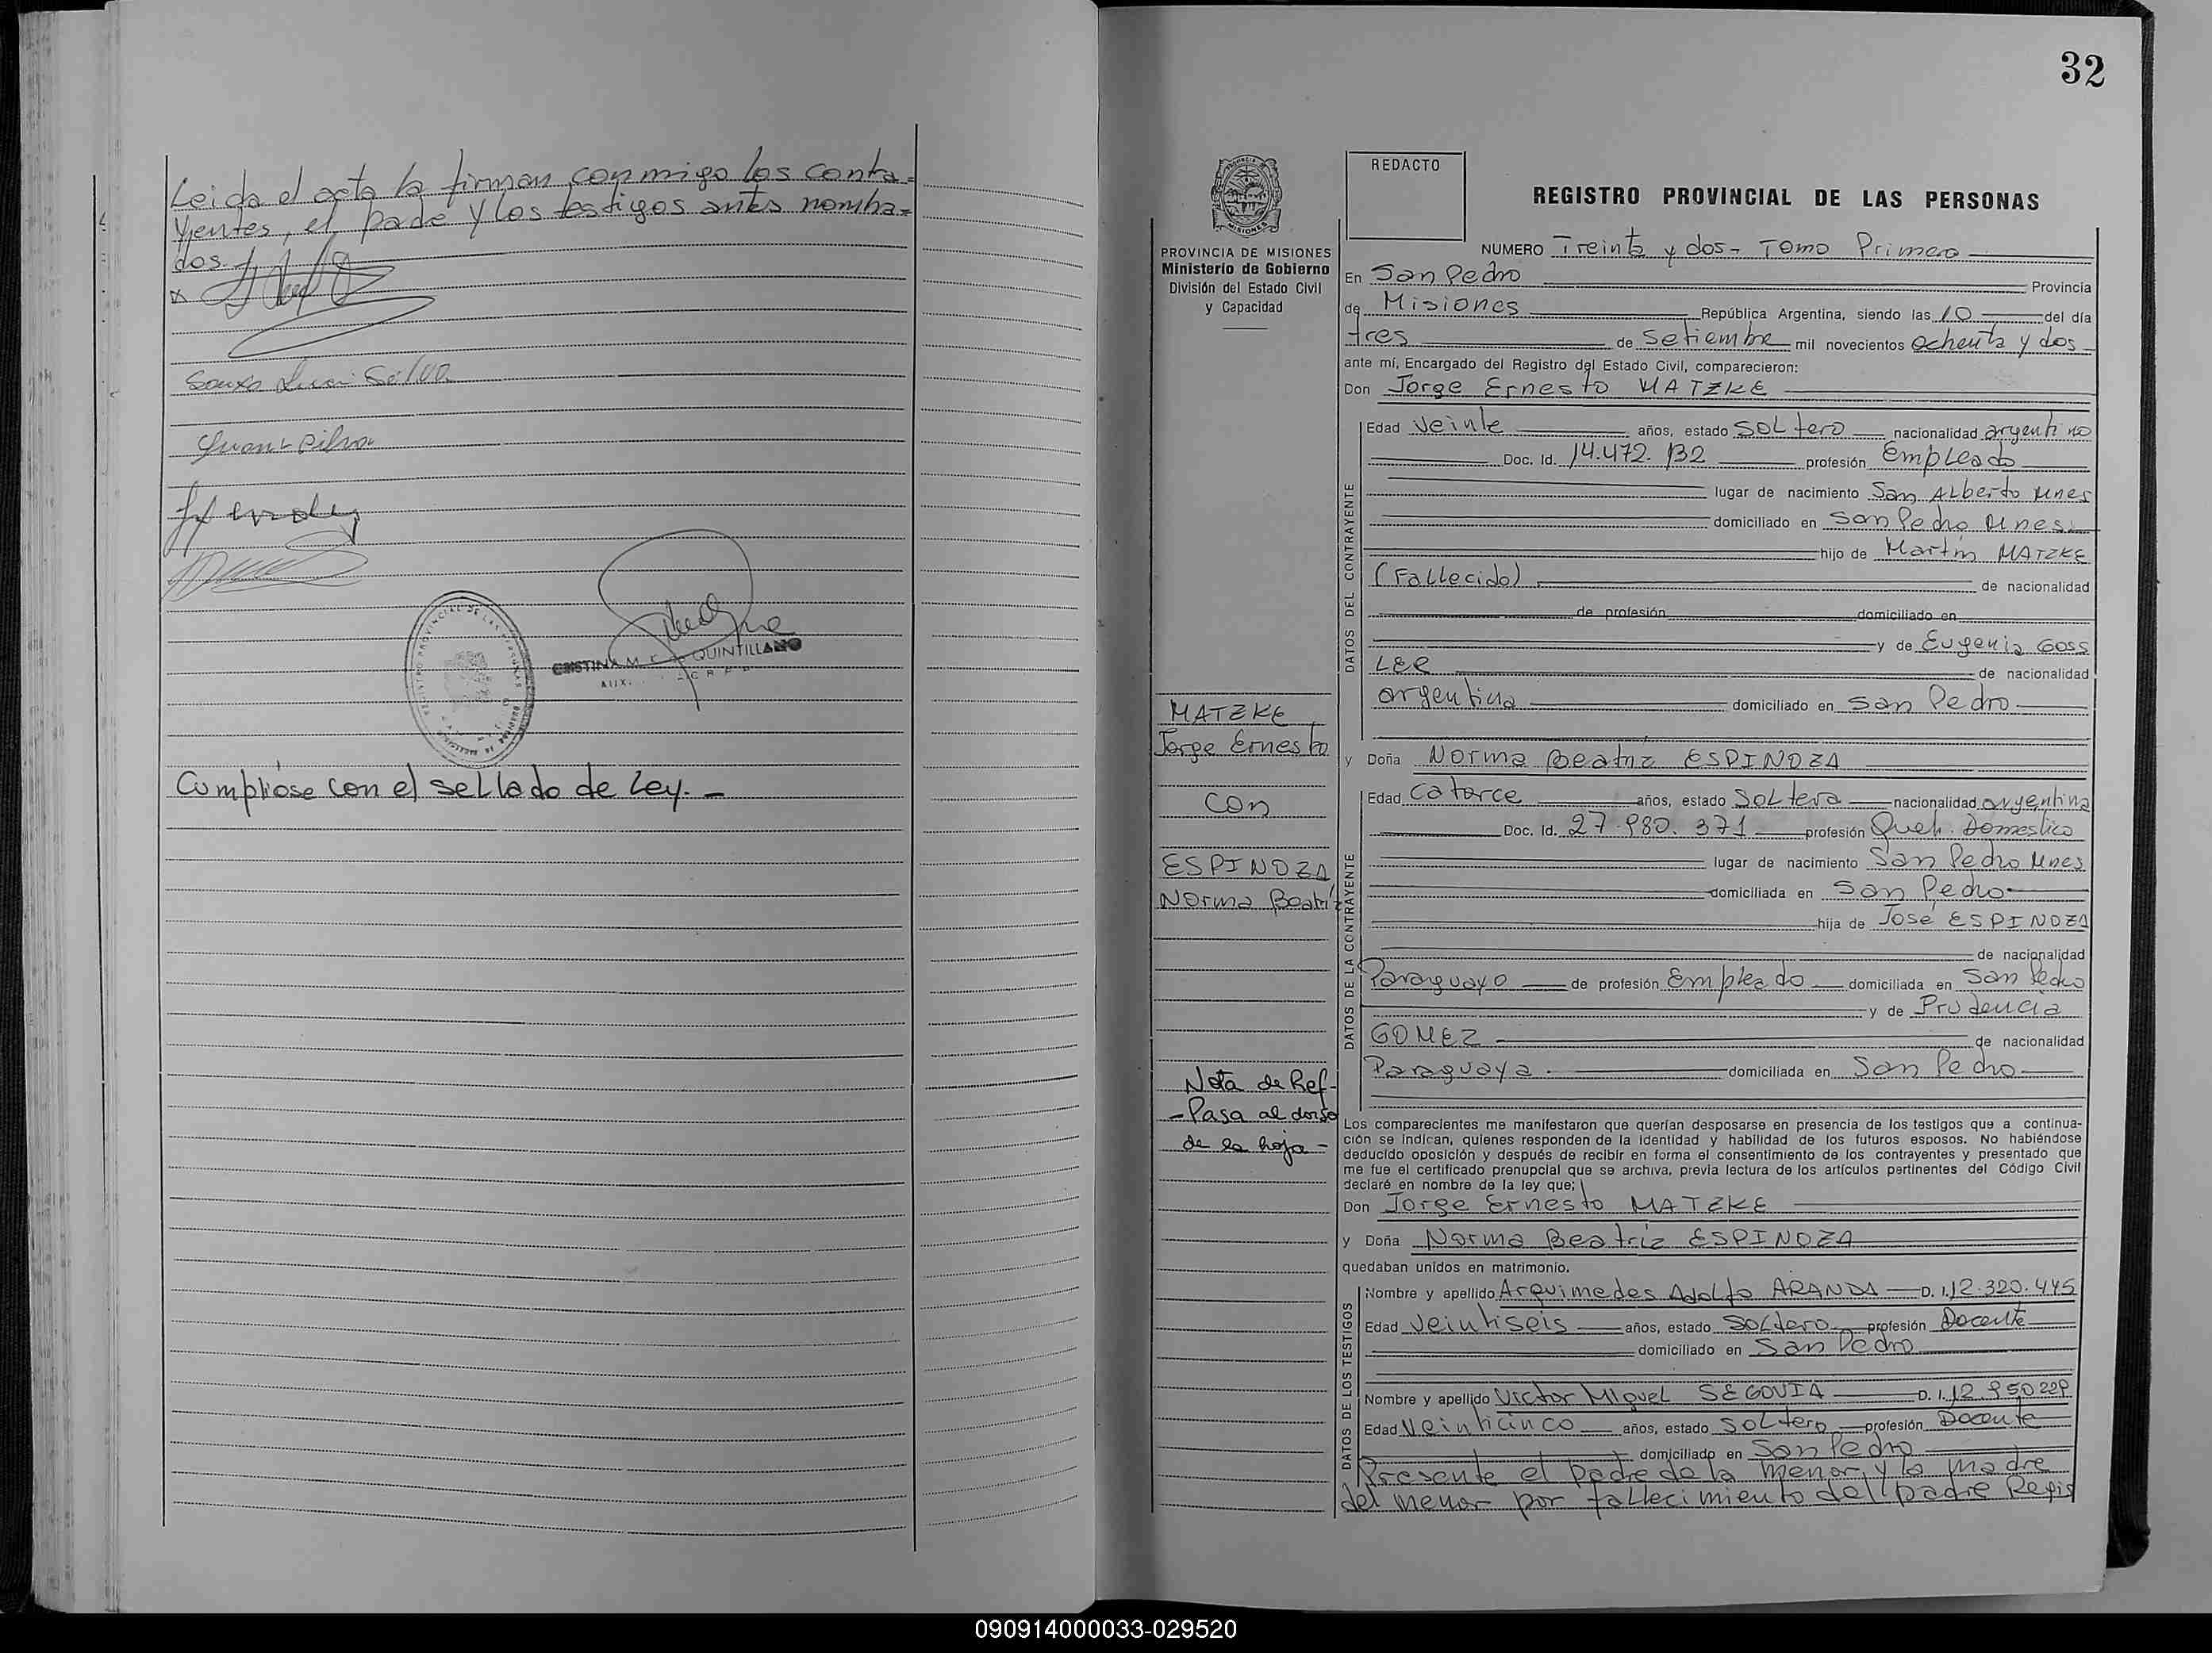 Leida el acta la firman conmigo los contra=
yentes, el padre y los testigos antes nombra=
dos.
x
Juan Silva
Juan Silva
CRISTINA M. QUINTILLANO
AUX.
Cumpliose con el sellado de Ley. -
32
REDACTO
REGISTRO PROVINCIAL DE LAS PERSONAS
PROVINCIA DE MISIONES
Ministerio de Gobierno
División del Estado Civil
y Capacidad
NUMERO Treinta y dos - Tomo Primero
En San Pedro Provincia
de Misiones República Argentina, siendo las 10 del día
tres de Setiembre mil novecientos ochenta y dos
ante mí, Encargado del Registro del Estado Civil, comparecieron:
Don Jorge Ernesto MATZKE
DATOS DEL CONTRAYENTE
Edad Veinte años, estado SOLtero nacionalidad argentino
Doc. Id. 14.472.132 profesión Empleado
lugar de nacimiento San Alberto Mnes
domiciliado en San Pedro Mnes.
hijo de Martín MATZKE
(Fallecido) de nacionalidad
de profesión domiciliado en
y de Eugenia GOSS
LER de nacionalidad
argentina domiciliado en San Pedro
MATZKE
Jorge Ernesto
con
ESPINOZA
Norma Beatriz
y Doña Norma Beatriz ESPINOZA
DATOS DE LA CONTRAYENTE
Edad Catorce años, estado SOLtera nacionalidad argentina
Doc. Id. 27.980.371 profesión Queh. Domestico
lugar de nacimiento San Pedro Mnes
domiciliada en San Pedro
hija de José ESPINOZA
de nacionalidad
Paraguayo de profesión Empleado domiciliada en San Pedro
y de Prudencia
GOMEZ de nacionalidad
Paraguaya. domiciliada en San Pedro
Nota de Ref-
-Pasa al dorso
de la hoja-
Los comparecientes me manifestaron que querían desposarse en presencia de los testigos que a continua-
ción se indican, quienes responden de la identidad y habilidad de los futuros esposos. No habiéndose
deducido oposición y después de recibir en forma el consentimiento de los contrayentes y presentado que
me fue el certificado prenupcial que se archiva, previa lectura de los artículos pertinentes del Código Civil
declaré en nombre de la ley que;
Don Jorge Ernesto MATZKE
y Doña Norma Beatriz ESPINOZA
quedaban unidos en matrimonio.
DATOS DE LOS TESTIGOS
Nombre y apellido Arquimedes Adolfo ARANDA D. I. 12.320.445
Edad Veintiseis años, estado SOLtero profesión Docente
domiciliado en San Pedro
Nombre y apellido Victor Miguel SEGOVIA D. I. 12.950.229
Edad Veinticinco años, estado SOLtero profesión Docente
domiciliado en San Pedro
Presente el padre de la menor, y la madre
del menor por fallecimiento del padre Regis
090914000033-029520